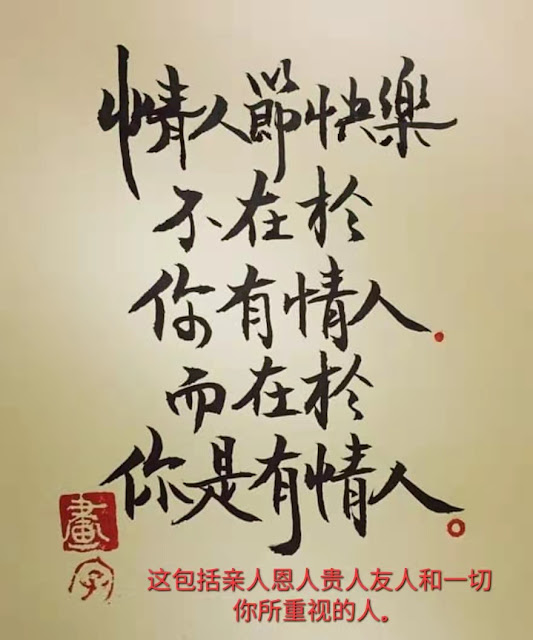 情人節快樂
不在於
你有情人.
而在於
你是有情人。
畫
字
这包括亲人恩人贵人友人和一切
你所重视的人。